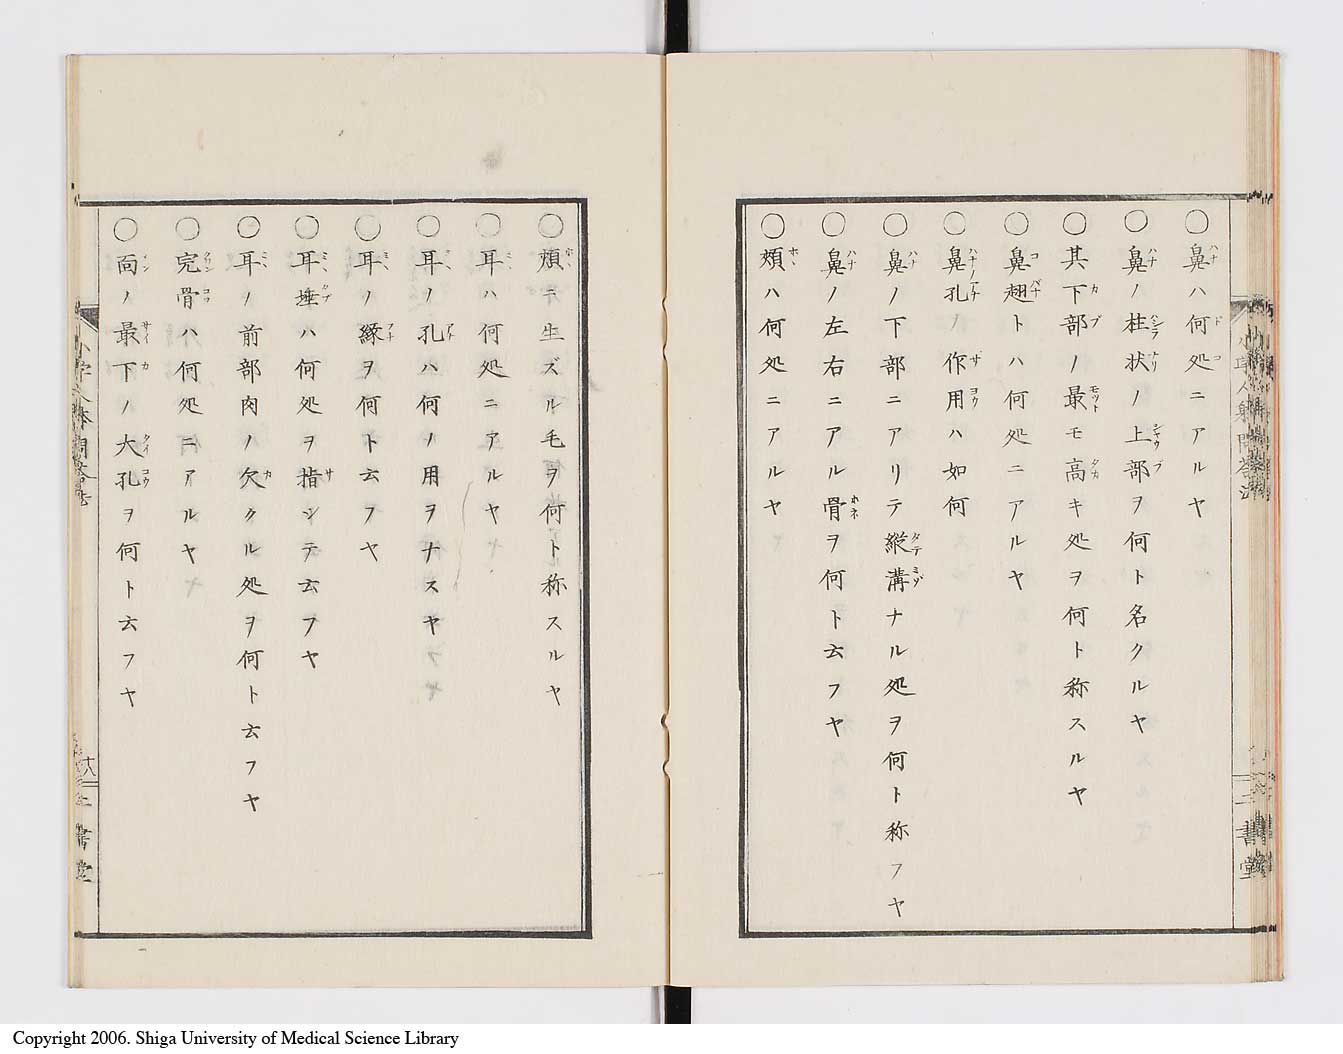 ○鼻ハ何処ニアルヤ
○鼻ノ柱状ノ上部ヲ何ト名クルヤ
○其下部ノ最モ高キ処ヲ何ト称スルヤ
○鼻翹トハ何処ニアルヤ
○鼻孔ノ作用ハ如何
○鼻ノ下部ニアリテ縦溝ナル処ヲ何ト称フヤ
○鼻ノ左右ニアル骨ヲ何ト云フヤ
○頬ハ何処ニアルヤ
二書堂
○頬ニ生ズル毛ヲ何ト称スルヤ
○耳ハ何処ニアルヤ
○耳ノ孔ハ何ノ用ヲナスヤ
○耳ノ縁ヲ何ト云フヤ
○耳埵ハ何処ヲ指シテ云フヤ
○耳ノ前部肉ノ欠クル処ヲ何ト云フヤ
○完骨ハ何処ニアルヤ
○面ノ最下ノ大孔ヲ何ト云フヤ
十八
書堂
Copyright 2006. Shiga University of Medical Science Library